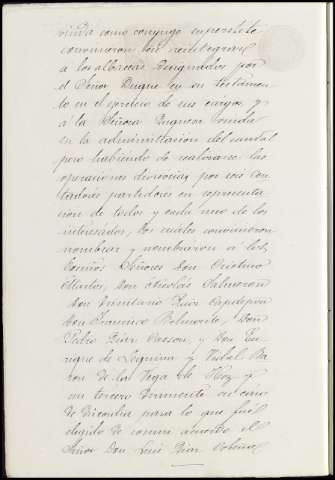 viuda como conyuge superstite
convinieron en reintegrar
a los albaceas designados por
el Señor Duque en su testamen-
to en el ejercicio de sus cargos y
á la Señora Duquesa viuda
en la administración del caudal
pero habiendo de realizarse las
operaciones divisorias por seis con-
tadores partidores en representa-
cion de todos y cada uno de los
interesados, los cuales convinieron
nombrar y nombraron á los
Excmos Señores Don Cristino
Martos, Don Nicolás Salmeron
Don Francisco Belmonte, Don
Pedro Diaz Cassou, y Don En-
rique de y Vidal Ba-
ron de la Vega de Hoz y
un tercero Dirimente en caso
de discordia para lo que fué
elegido de comun acuerdo el
Señor Don Luis Diaz